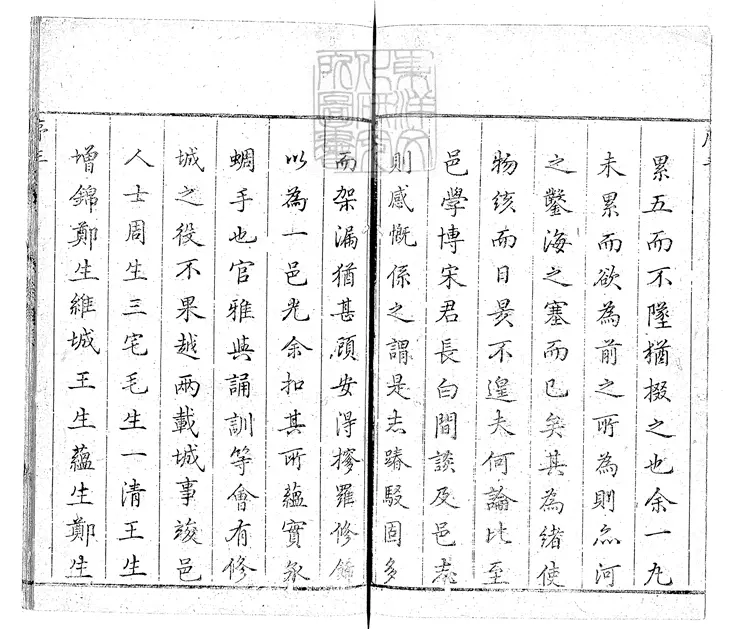 累五而不墜猶掇之也余一九
未累而欲為前之所為則亦河
之鑿海之塞而已矣其為緒使
物絯而日昃不遑夫何論比至
邑學博宋君長白間談及邑志
則感慨係之謂是志踳駁固多
而架漏猶甚顧安得摻羅修
以為一邑光余扣其所蘊實承
蜩手也官雅與誦訓等會有修
城之役不果越兩載城事竣邑
人士周生三宅毛生一清王生
增錦鄭生維城王生蘊生鄭生